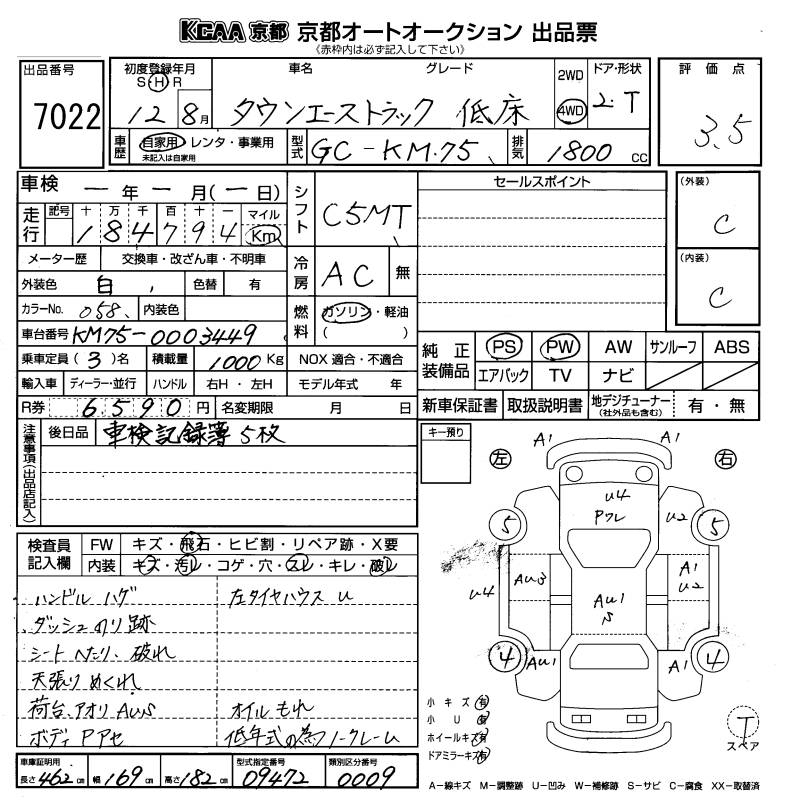 KCAA 京都 京都オートオークション 出品票
《赤枠内は必ず記入して下さい》
出品番号 7022
初度登録年月 S・H・R 12 8月
車名 グレード
タウンエーストラック 低床
2WD 4WD
ドア・形状 2.T
評価点 3.5
車歴 自家用・レンタ・事業用 未記入は自家用
型式 GC-KM75
排気 1800 CC
車検 ー年ー月(ー日)
走行 記号 十 万 千 百 十 一 マイル
184794 Km
シフト C5MT
セールスポイント
(外装) C
(内装) C
メーター歴 交換車・改ざん車・不明車
外装色 白 色替 有
冷房 AC 無
カラーNo. 058 内装色
燃料 ガソリン・軽油 ( )
車台番号 KM75-0003449
乗車定員 (3)名 積載量 1000 Kg NOX 適合・不適合
輸入車 ディーラー・並行 ハンドル 右H・左H モデル年式 年
R券 6590円 名変期限 月 日
純正装備品 PS PW AW サンルーフ ABS
エアバック TV ナビ
新車保証書 取扱説明書 地デジチューナー (社外品も含む) 有・無
注意事項(出品店記入)
後日品 車検記録簿 5枚
キー預り
左 右
A1 A1
U4
Pクレ
U2
5 5
AU3
A1
U2
U4
AU1
S
4 AU1 A1 4
検査員記入欄 FW キズ・飛石・ヒビ割・リペア跡・X要
内装 キズ・汚レ・コゲ・穴・スレ・キレ・破レ
ハンドル ハゲ 左タイヤハウス U
ダッシュのり跡
シートへたり、破れ
天張り めくれ
荷台、アオリ AUS オイルもれ
ボディ Pアセ 低年式の為ノークレーム
小キズ 有
小 U 有
ホイールキズ 有
ドアミラーキズ 有
T
スペア
車庫証明用 長さ 462 cm 幅 169 cm 高さ 182 cm
型式指定番号 09472
類別区分番号 0009
A−線キズ M−調整跡 U−凹み W−補修跡 S−サビ C−腐食 XX−取替済